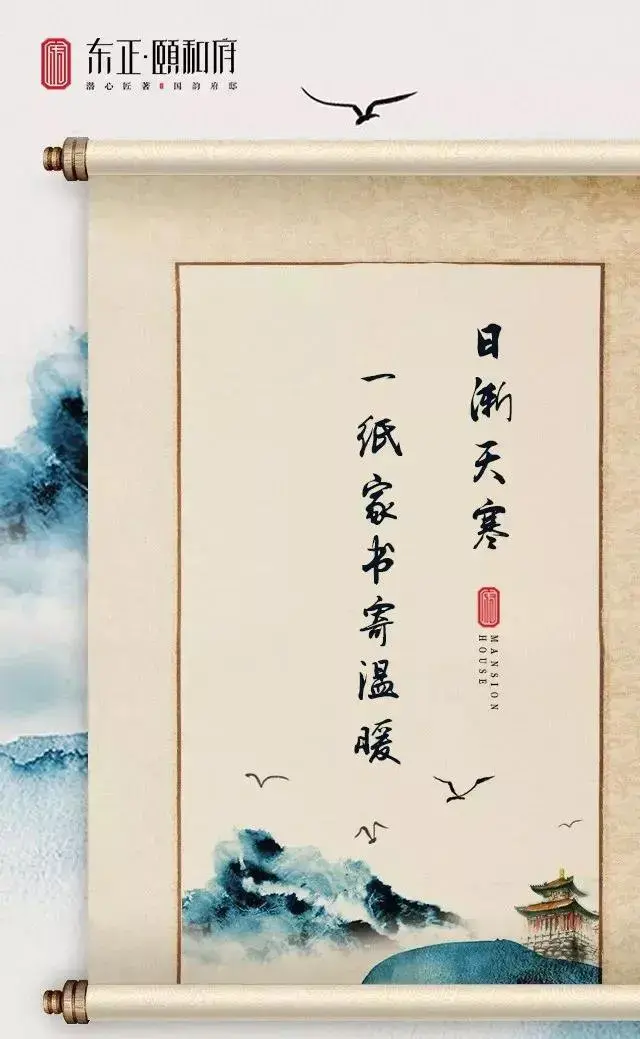 东正·颐和府
潜心匠著 国韵府邸
日渐天寒
一纸家书寄温暖
MANSION
HOUSE